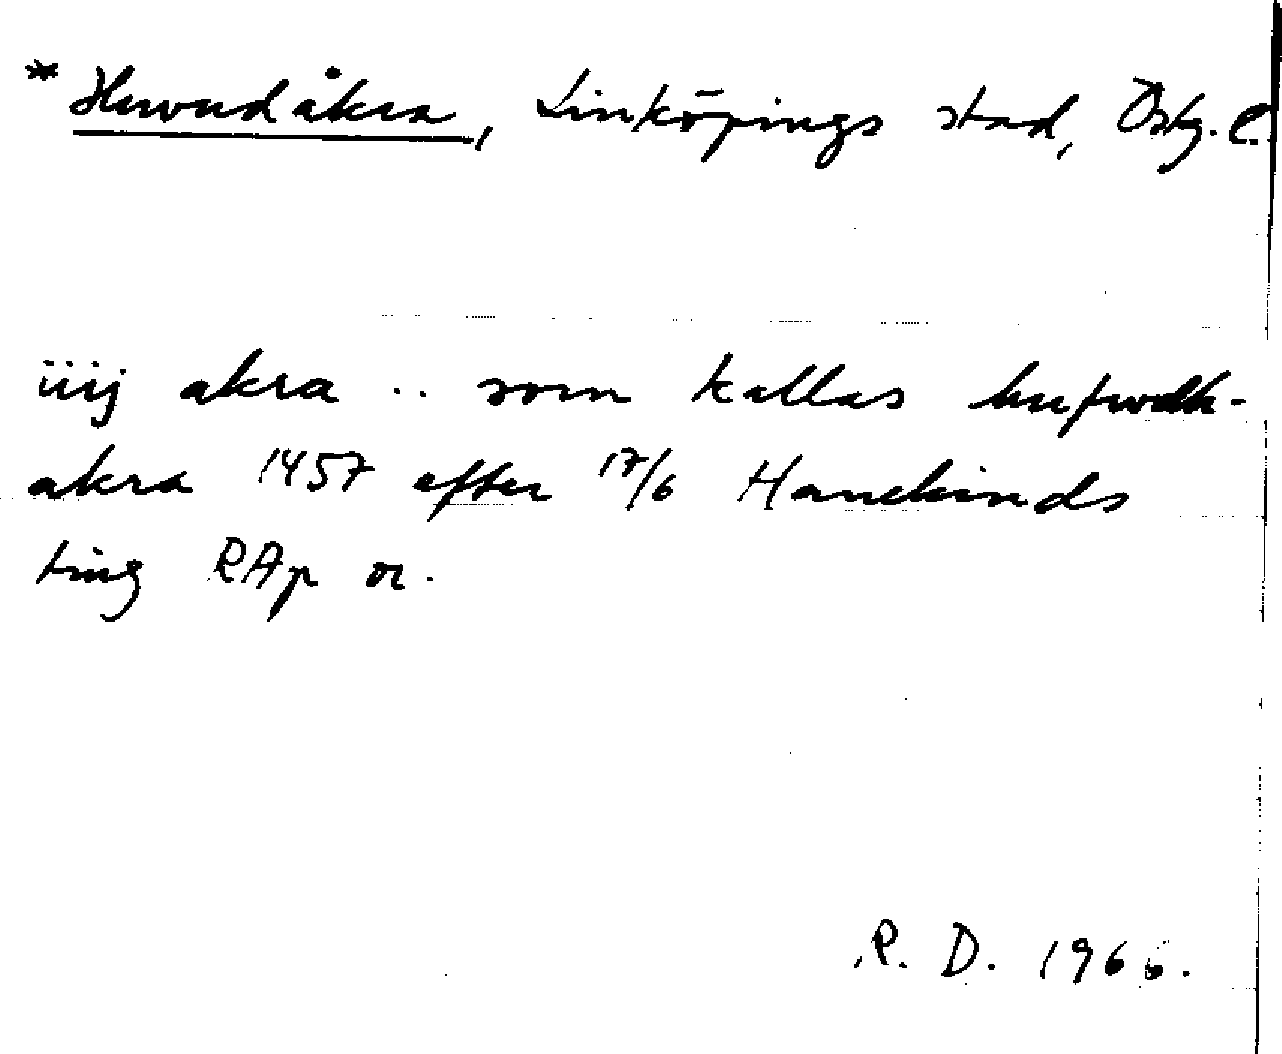 * Huvudåkra, Linköpings stad, Östg. l.
iiij akra .. som kallas hufwdh-
akra 1457 efter 17/6 Hanekinds
ting RAp or.
R. D. 1966.